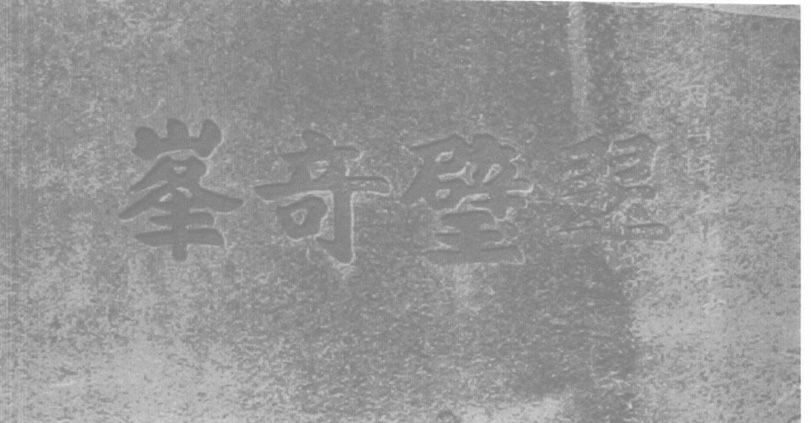 翠壁奇峯